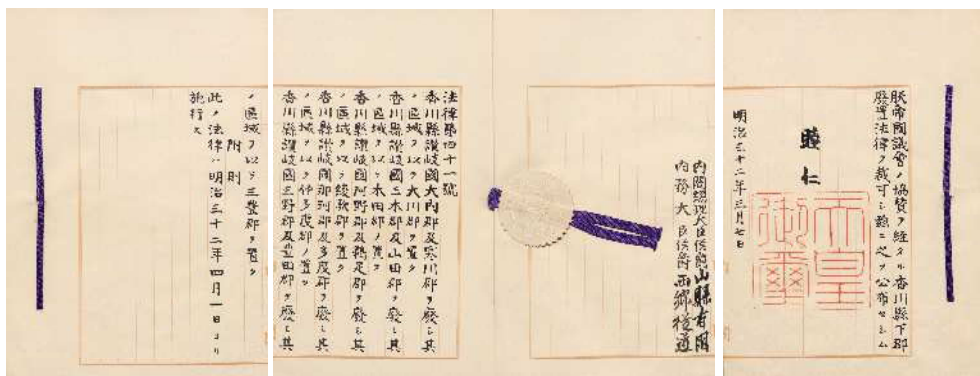 朕帝國議會ノ協賛ヲ經タル香川縣下郡
廢置法律ヲ裁可シ茲ニ之ヲ公布セシム
睦仁
天皇
御璽
明治三十二年三月七日
内閣總理大臣侯爵山縣有朋
内務大臣侯爵西鄕從道
法律第四十一號
香川縣讃岐國大内郡及寒川郡ヲ廢シ其
ノ區域ヲ以テ大川郡ヲ置ク
香川縣讃岐國三木郡及山田郡ヲ廢シ其
ノ區域ヲ以テ木田郡ヲ置ク
香川縣讃岐國阿野郡及鵜足郡ヲ廢シ其
ノ區域ヲ以テ綾歌郡ヲ置ク
香川縣讃岐國那珂郡及多度郡ヲ廢シ其
ノ區域ヲ以テ仲多度郡ヲ置ク
香川縣讃岐國三野郡及豊田郡ヲ廢シ其
ノ區域ヲ以テ三豐郡ヲ置ク
附則
此ノ法律ハ明治三十二年四月一日ヨリ
施行ス